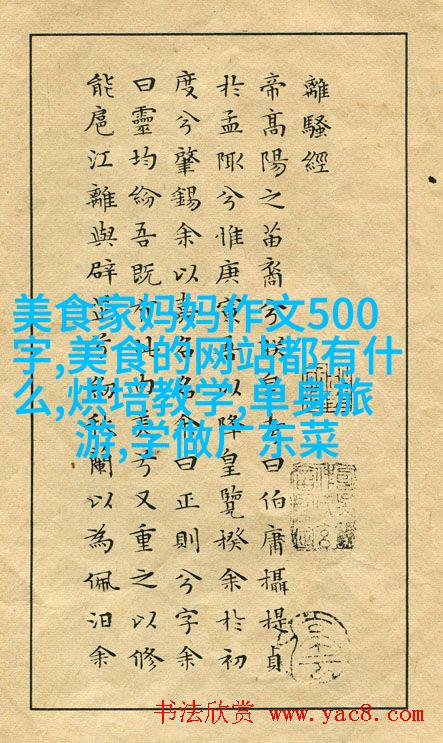 離騷經
帝高陽之苗裔兮朕皇考曰伯庸攝提貞
於孟陬兮惟庚寅吾以降皇覽揆余於初
度兮肇錫余以嘉名名余曰正則兮字余
曰靈均紛吾既有此內美兮又重之以修
能扈江離與辟芷兮紉秋蘭以為佩汩余
美食家妈妈作文500
字,美食的网站都有什
么,烘培教学,单身旅
游,学做广东菜
书法欣赏 www.yac8.com